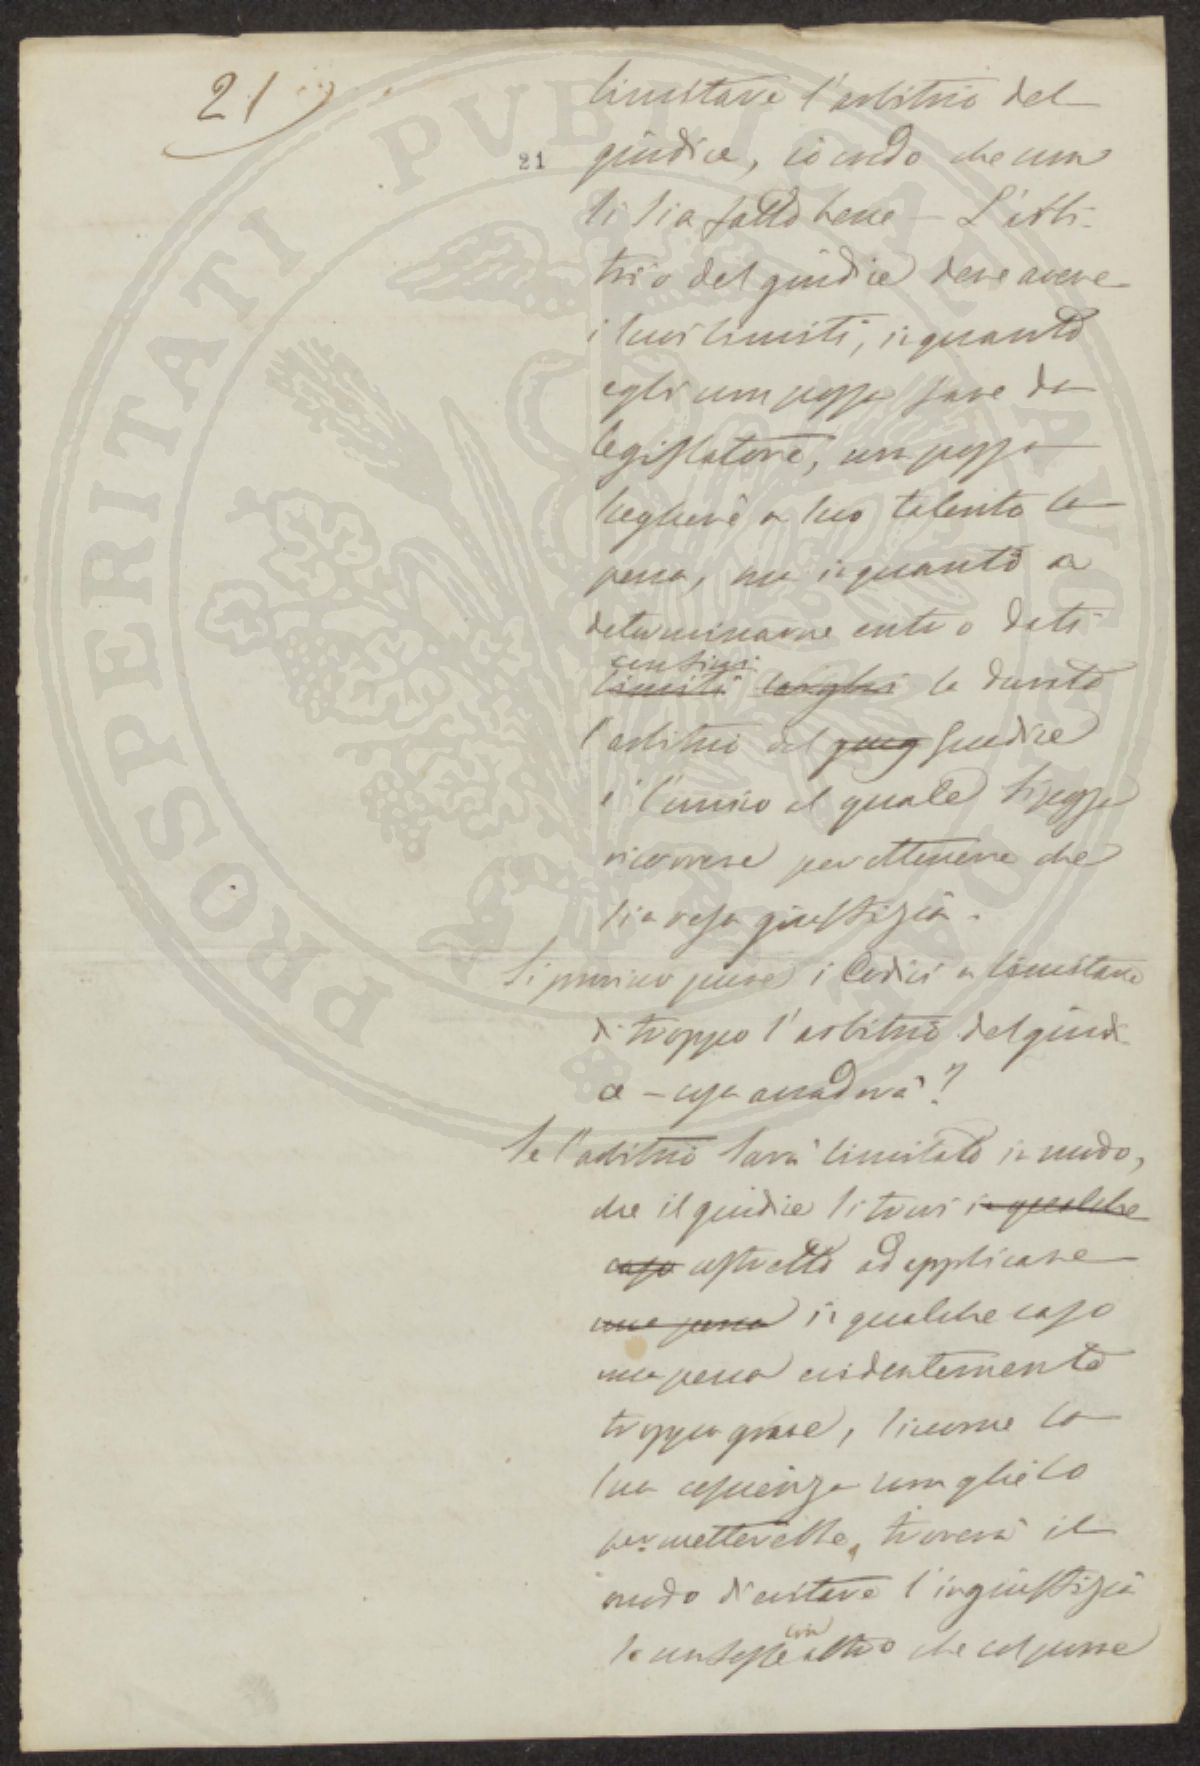 21
21
limitare l'arbitrio del
giudice, io credo che non
si sia fatto bene — L'arbi-
trio del giudice deve avere
i suoi limiti, in quanto
egli non possa fare da
legislatore, non possa
scegliere a suo talento la
pena, ma in quanto a
determinarne entro dati
confini
limiti larghi la durata
l'arbitrio del giudice
è l'unico al quale si possa
ricorrere per ottenere che
sia resa giustizia.
Si provino pure i Codici a limitare
di troppo l'arbitrio del giudi-
ce — cosa accadrà?
Se l'arbitrio sarà limitato in modo,
che il giudice si trovi in qualche
caso costretto ad applicare
una pena in qualche caso
una pena evidentemente
troppo grave, siccome la
sua coscienza non glielo
permetterebbe, troverà il
modo di evitare l'ingiustizia
se non fosse con altro che col porre
PROSPERITATI PVBLICAE AVGENDAE